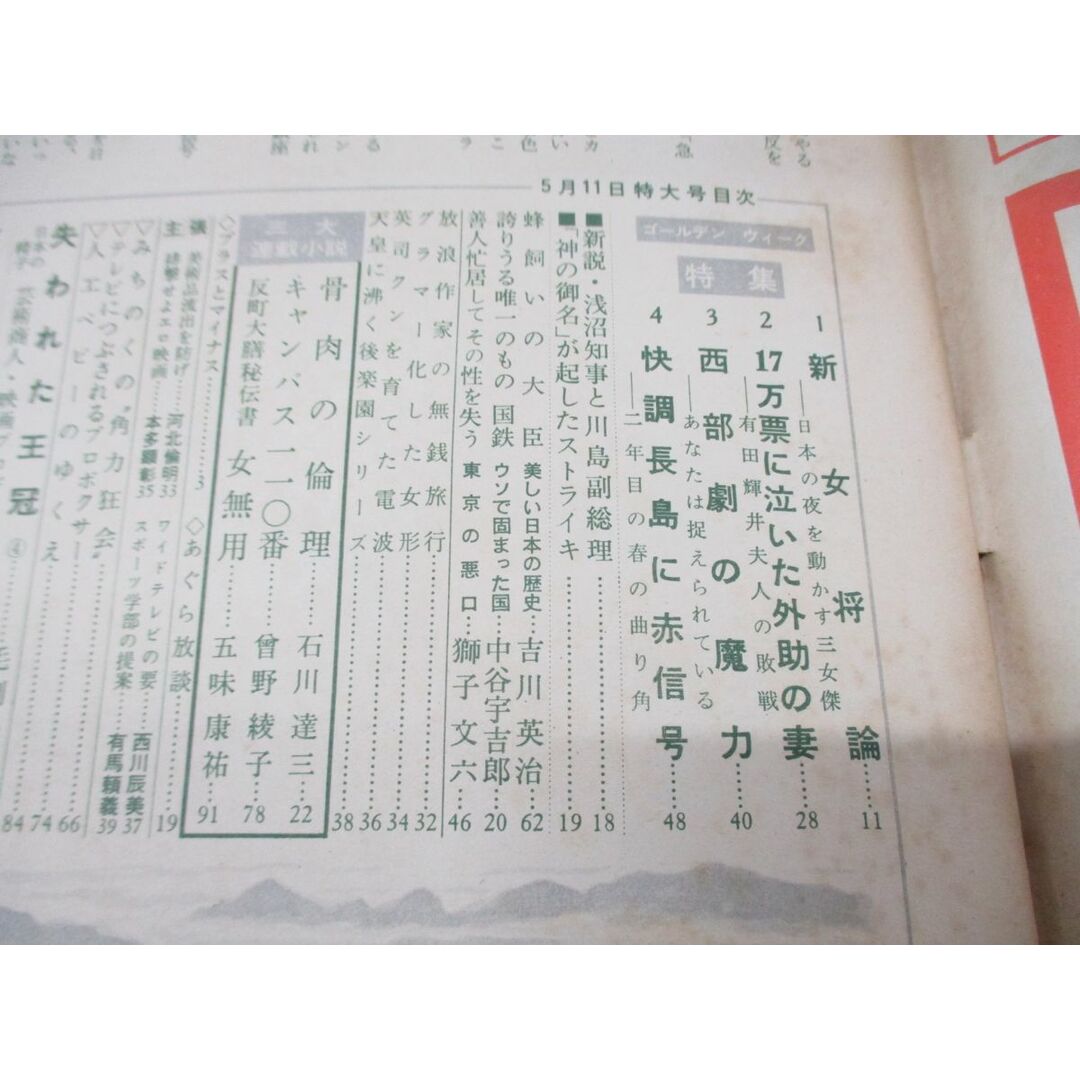 5月11日特大号目次
ゴールデン ウィーク
特集
1 新女将論……11
──日本の夜を動かす三女傑
2 17万票に泣いた外助の妻……28
──有田輝井夫人の敗戦
3 西部劇の魔力……40
──あなたは捉えられている
4 快調長島に赤信号……48
──二年目の春の曲り角
■新説・浅沼知事と川島副総理……18
■「神の御名」が起したストライキ……19
蜂飼いの大臣 美しい日本の歴史……吉川英治……62
誇りうる唯一のもの 国鉄 ウソで固まった国……中谷宇吉郎……20
善人忙居してその性を失う 東京の悪口……獅子文六……46
放浪作家の無銭旅行……32
グラマー化した女形……34
英司クンを育てた電波……36
天皇に沸く後楽園シリーズ……38
三大連載小説
骨肉の倫理……石川達三……22
キャンバス一一〇番……曾野綾子……78
反町大膳秘伝書 女無用……五味康祐……91
◇プラスとマイナス……3
◇あぐら放談……19
主張
美術品流出を防げ……河北倫明33
排撃せよエロ映画……本多顕彰35
ワイドテレビの要……西川辰美37
スポーツ学部の提案……有馬頼義39
▽みちのくの"角力狂会"
▽テレビにつぶされるプロボクサー
▽人工ベビーのゆくえ……66
失われた王冠
74
84
④